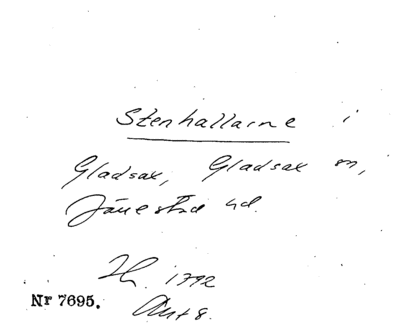 Stenhallarne i
Gladsax, Gladsax sn,
Järrestad hd.
1792
Nr 7695.